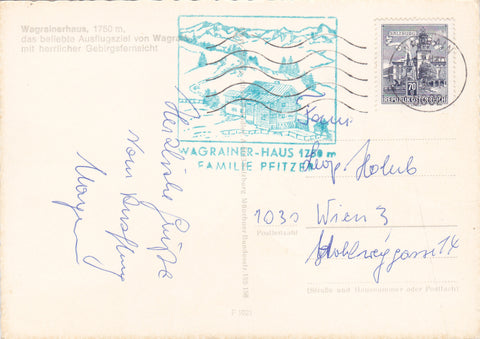 Wagrainerhaus, 1750 m,
das beliebte Ausflugsziel von Wagrain
mit herrlicher Gebirgsfernsicht
WAGRAINER-HAUS 1750 m
FAMILIE PFITZER
SALZBURG
70
REPUBLIK ÖSTERREICH
Herzliche Grüße
vom
Holub
1030 Wien 3
Postleitzahl
14
(Straße und Hausnummer oder Postfach)
Salzburg, Münchner Bundesstr.
F 1621